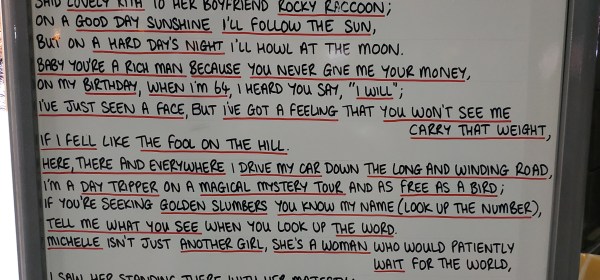 SAID LOVELY RITA TO HER BOYFRIEND ROCKY RACCOON;
ON A GOOD DAY SUNSHINE I'LL FOLLOW THE SUN,
BUT ON A HARD DAY'S NIGHT I'LL HOWL AT THE MOON.
BABY YOU'RE A RICH MAN BECAUSE YOU NEVER GIVE ME YOUR MONEY,
ON MY BIRTHDAY, WHEN I'M 64, I HEARD YOU SAY, "I WILL";
I'VE JUST SEEN A FACE, BUT I'VE GOT A FEELING THAT YOU WON'T SEE ME
CARRY THAT WEIGHT,
IF I FELL LIKE THE FOOL ON THE HILL.
HERE, THERE AND EVERYWHERE I DRIVE MY CAR DOWN THE LONG AND WINDING ROAD,
I'M A DAY TRIPPER ON A MAGICAL MYSTERY TOUR AND AS FREE AS A BIRD;
IF YOU'RE SEEKING GOLDEN SLUMBERS YOU KNOW MY NAME (LOOK UP THE NUMBER),
TELL ME WHAT YOU SEE WHEN YOU LOOK UP THE WORD.
MICHELLE ISN'T JUST ANOTHER GIRL, SHE'S A WOMAN WHO WOULD PATIENTLY
WAIT FOR THE WORLD,
I SAW HER STANDING THERE WITH HER